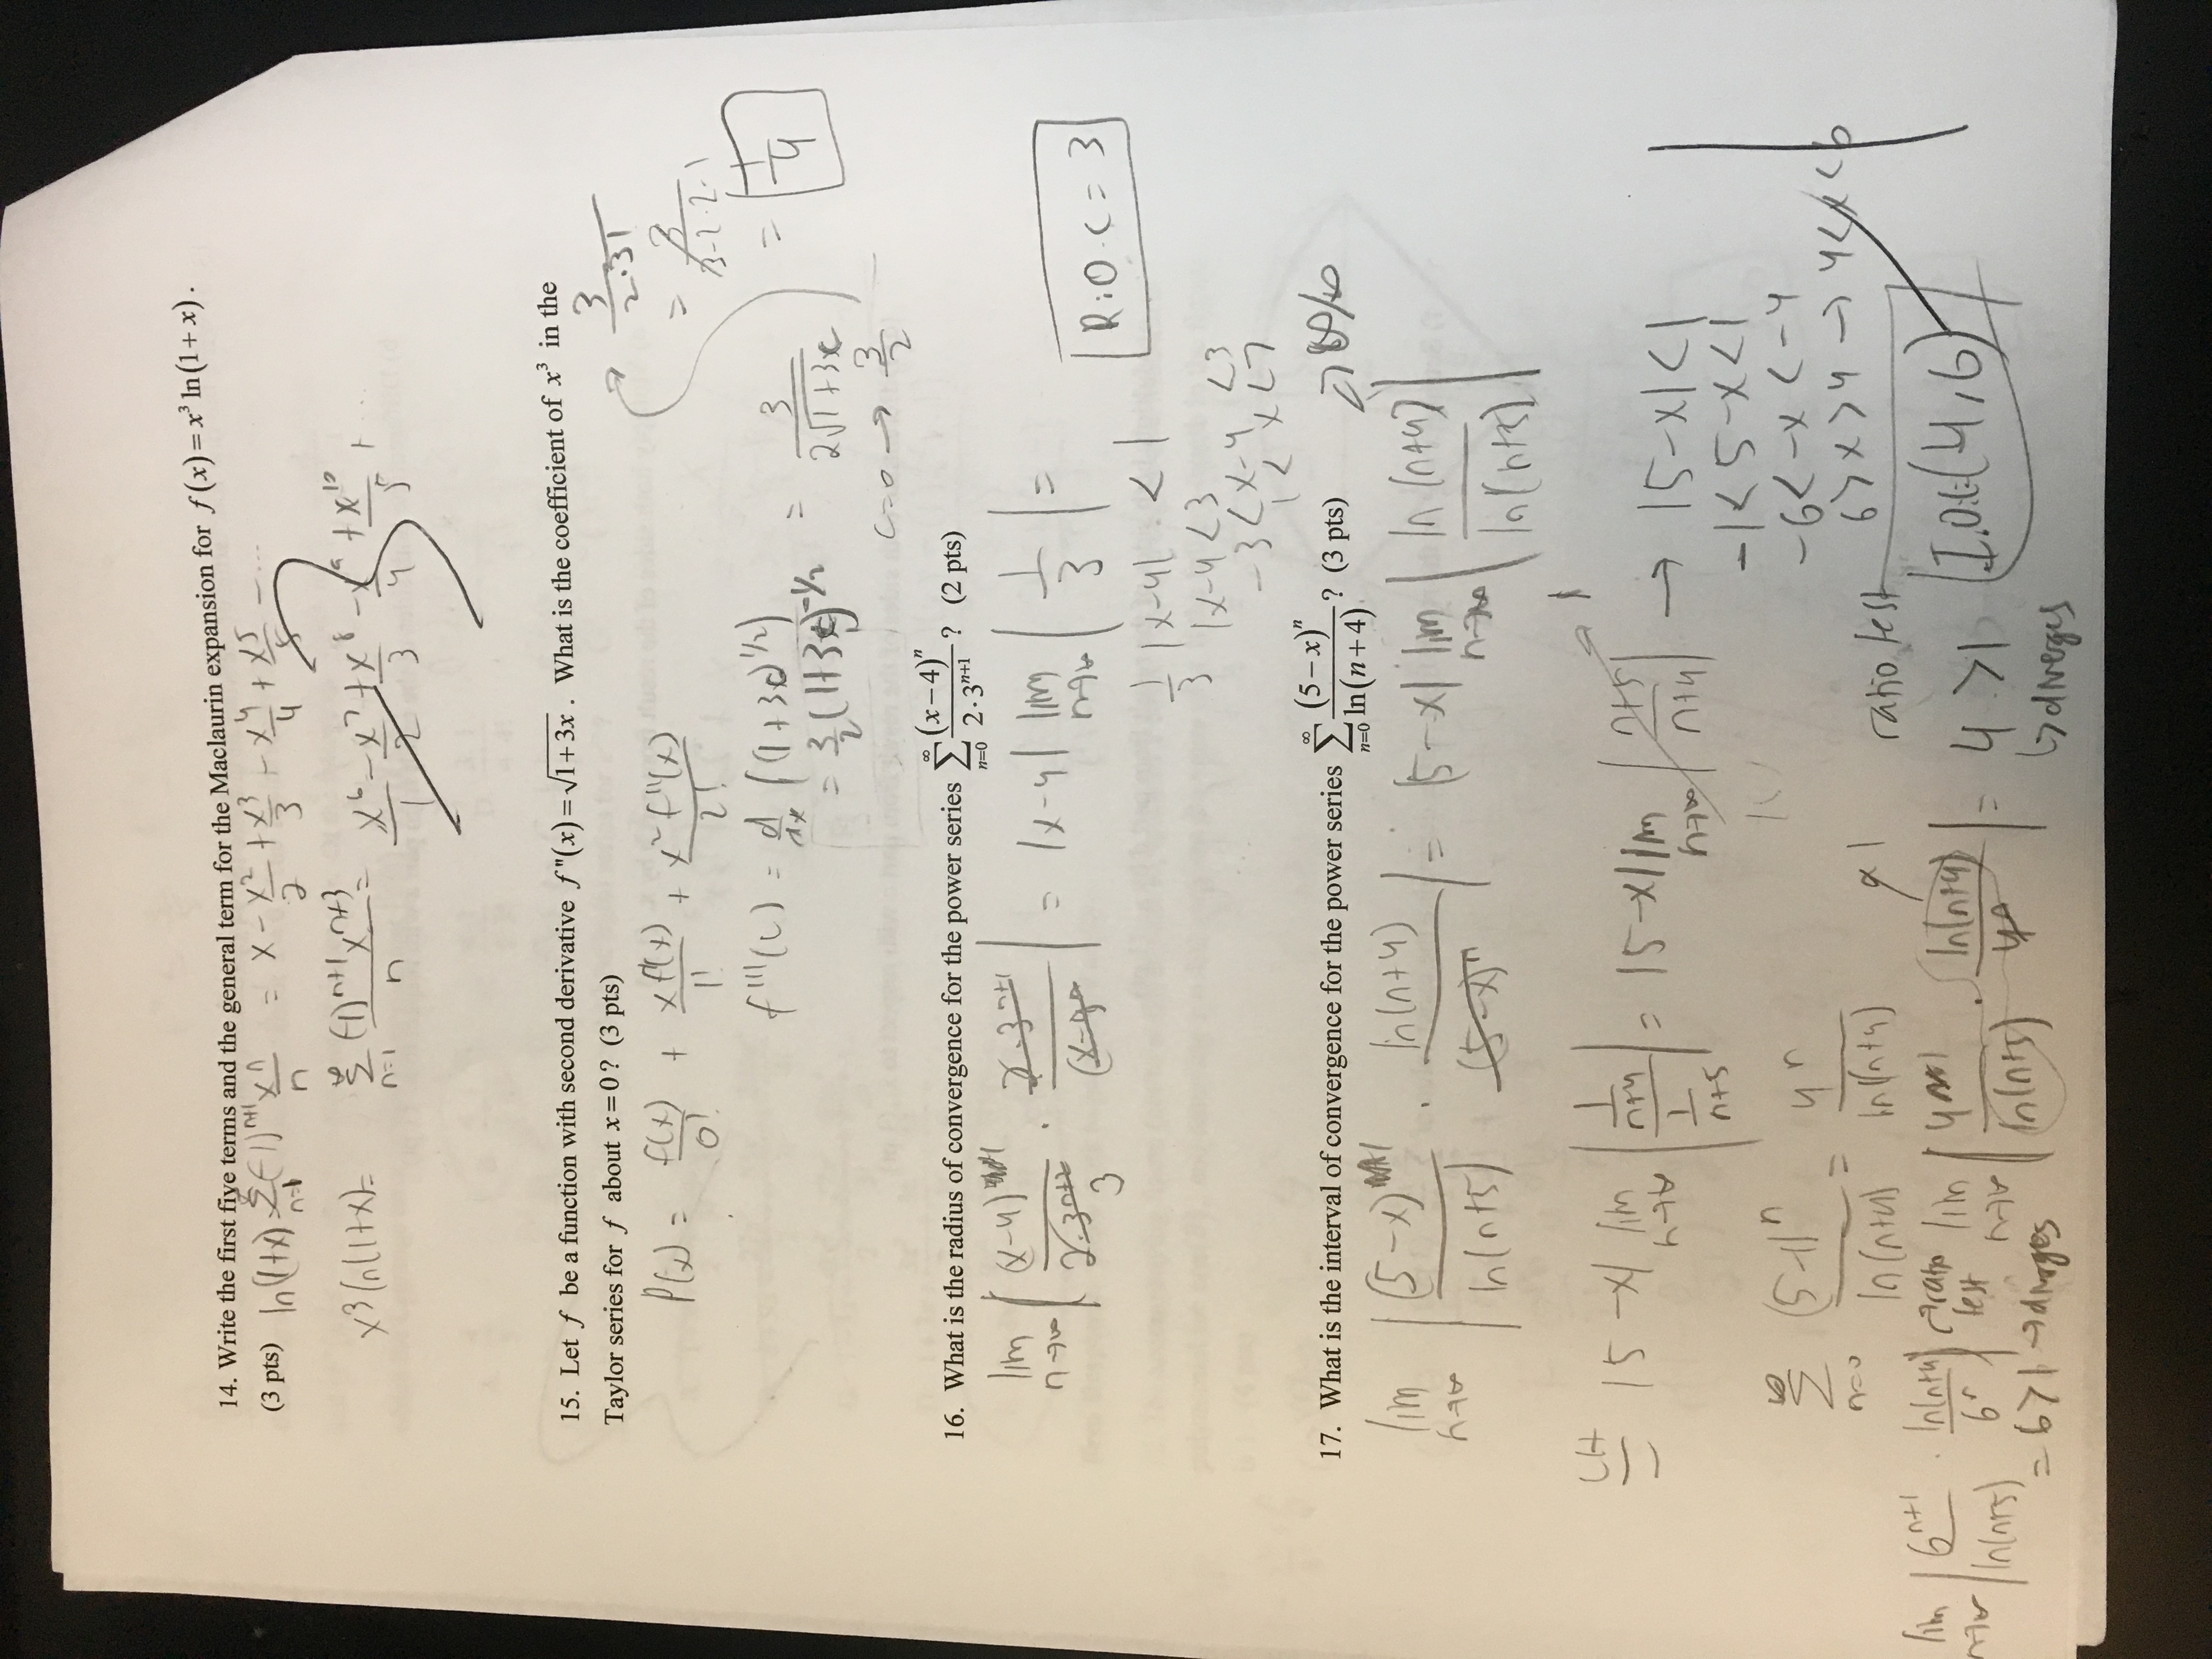 14. Write the first five terms and the general term for the Maclaurin expansion for f(x) = x³ ln(1 + x).
(3 pts) ln(1+x) Σ n=1 (-1)ⁿ⁺¹ xⁿ/n = x - x²/2 + x³/3 - x⁴/4 + x⁵/5 - ...
x³ ln(1+x) = ∞ Σ n=1 (-1)ⁿ⁺¹xⁿ⁺³/n = x⁶/1 - x⁷/2 + x⁸/3 - x⁹/4 + x¹⁰/5 + ...
15. Let f be a function with second derivative f"(x) = √(1+3x). What is the coefficient of x³ in the
Taylor series for f about x = 0? (3 pts)
3/(2·3!)
P(x) = f(x)/0! + x f'(x)/1! + x² f''(x)/2!
= 3/(3·2·2·1)
f'''(c) = d/dx ((1+3c)^1/2)
= 1/4
= 3/2 (1+3c)^-1/2 = 3/(2√1+3c)
c=0 → 3/2
16. What is the radius of convergence for the power series ∞ Σ n=0 (x-4)ⁿ/(2·3ⁿ⁺¹)? (2 pts)
lim n→∞ | (x-4)ⁿ⁺¹/(2·3ⁿ⁺²) 3 · (2·3ⁿ⁺¹)/(x-4)ⁿ | = |x-4| lim n→∞ | 1/3 | =
R.O.C = 3
1/3 |x-4| < 1
|x-4 < 3
-3 < x-4 < 3
1 < x < 7
17. What is the interval of convergence for the power series ∞ Σ n=0 (5-x)ⁿ/ln(n+4)? (3 pts)
→ ∞/∞
lim n→∞ | (5-x)ⁿ⁺¹/ln(n+5) · ln(n+4)/(5-x)ⁿ | = |5-x| lim n→∞ | ln(n+4)/ln(n+5) |
LH = |5-x| lim n→∞ | 1/(n+4) / 1/(n+5) | = |5-x| lim n→∞ | (n+5)/(n+4) | 1 → |5-x| < 1
-1 < 5-x < 1
-6 < -x < -4
6 > x > 4 → 4 < x < 6
∞ Σ n=0 (5-1)ⁿ/ln(n+4) = 4ⁿ/ln(n+4)
ratio test
lim n→∞ | 6ⁿ⁺¹/ln(n+5) · ln(n+4)/6ⁿ | → ratio test
= 6 > 1 → diverges
lim n→∞ | 4ⁿ⁺¹/ln(n+5) · ln(n+4)/4ⁿ | 1 = 4 > 1
↳ diverges
I.O.C: (4,6)